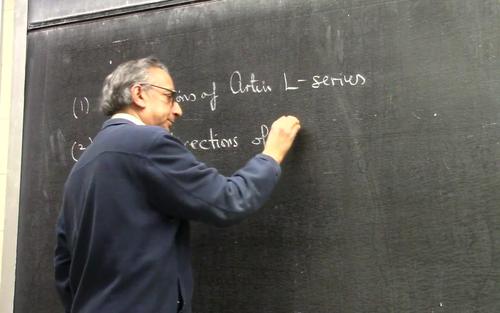 (1) ons of Artin L-series
(2) rections of